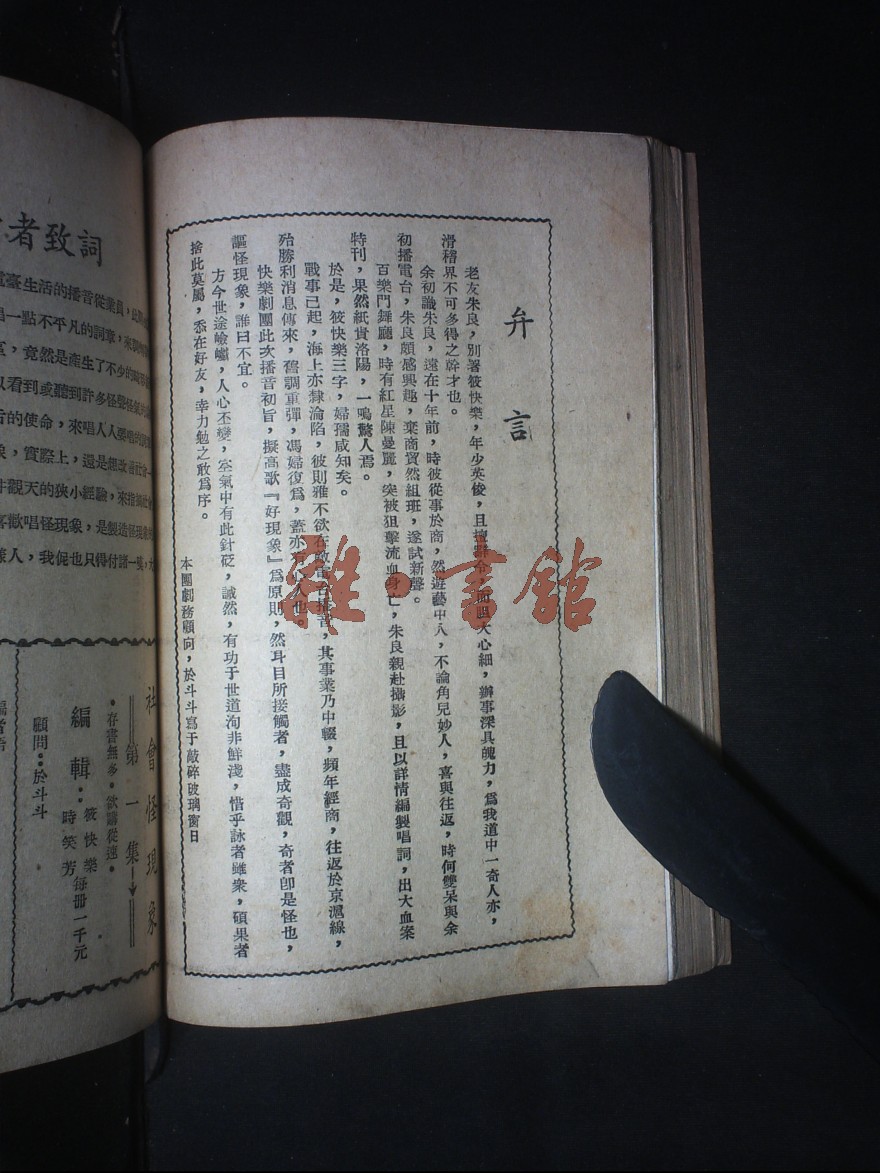 弁言
老友朱良，別署筱快樂，年少英俊，且擅辭令，而膽大心細，辦事深具魄力，爲我道中一奇人亦，
滑稽界不可多得之幹才也。
余初識朱良，遠在十年前，時彼從事於商，然遊藝中人，不論角兒妙人，喜與往返，時何雙呆與余
初播電台，朱良頗感興趣，棄商貿然組班，遂試新聲。
百樂門舞廳，時有紅星陳曼麗，突被狙擊流血身亡，朱良親赴攝影，且以詳情編製唱詞，出大血案
特刊，果然紙貴洛陽，一鳴驚人焉。
於是，筱快樂三字，婦孺咸知矣。
戰事已起，海上亦隸淪陷，彼則雅不欲在敵電台播音，其事業乃中輟，頻年經商，往返於京滬線，
殆勝利消息傳來，舊調重彈，馮婦復爲，蓋亦有心人也。
快樂劇團此次播音初旨，擬高歌『好現象』爲原則，然耳目所接觸者，盡成奇觀，奇者卽是怪也，
謳怪現象，誰曰不宜。
方今世途嶮巇，人心丕變，空氣中有此針砭，誠然，有功于世道洵非鮮淺，惜乎詠者雖衆，碩果者
捨此莫屬，忝在好友，幸力勉之敢爲序。
本團劇務顧向，於斗斗寫于敲碎玻璃窗日
雜·書館
者致詞
臺生活的播音從業員，
唱一點不平凡的詞章，來
竟然是產生了不少的
以看到或聽到許多怪聲怪氣
的使命，來唱人人要唱的
實際上，還是想改善社會
井觀天的狹小經驗，來指
喜歡唱怪現象，是製造怪現象
人，我促也只得付諸一笑，
社會怪現象
第一集
·存書無多·欲購從速·
編輯：筱快樂
時笑芳
每冊一千元
顧問：於斗斗